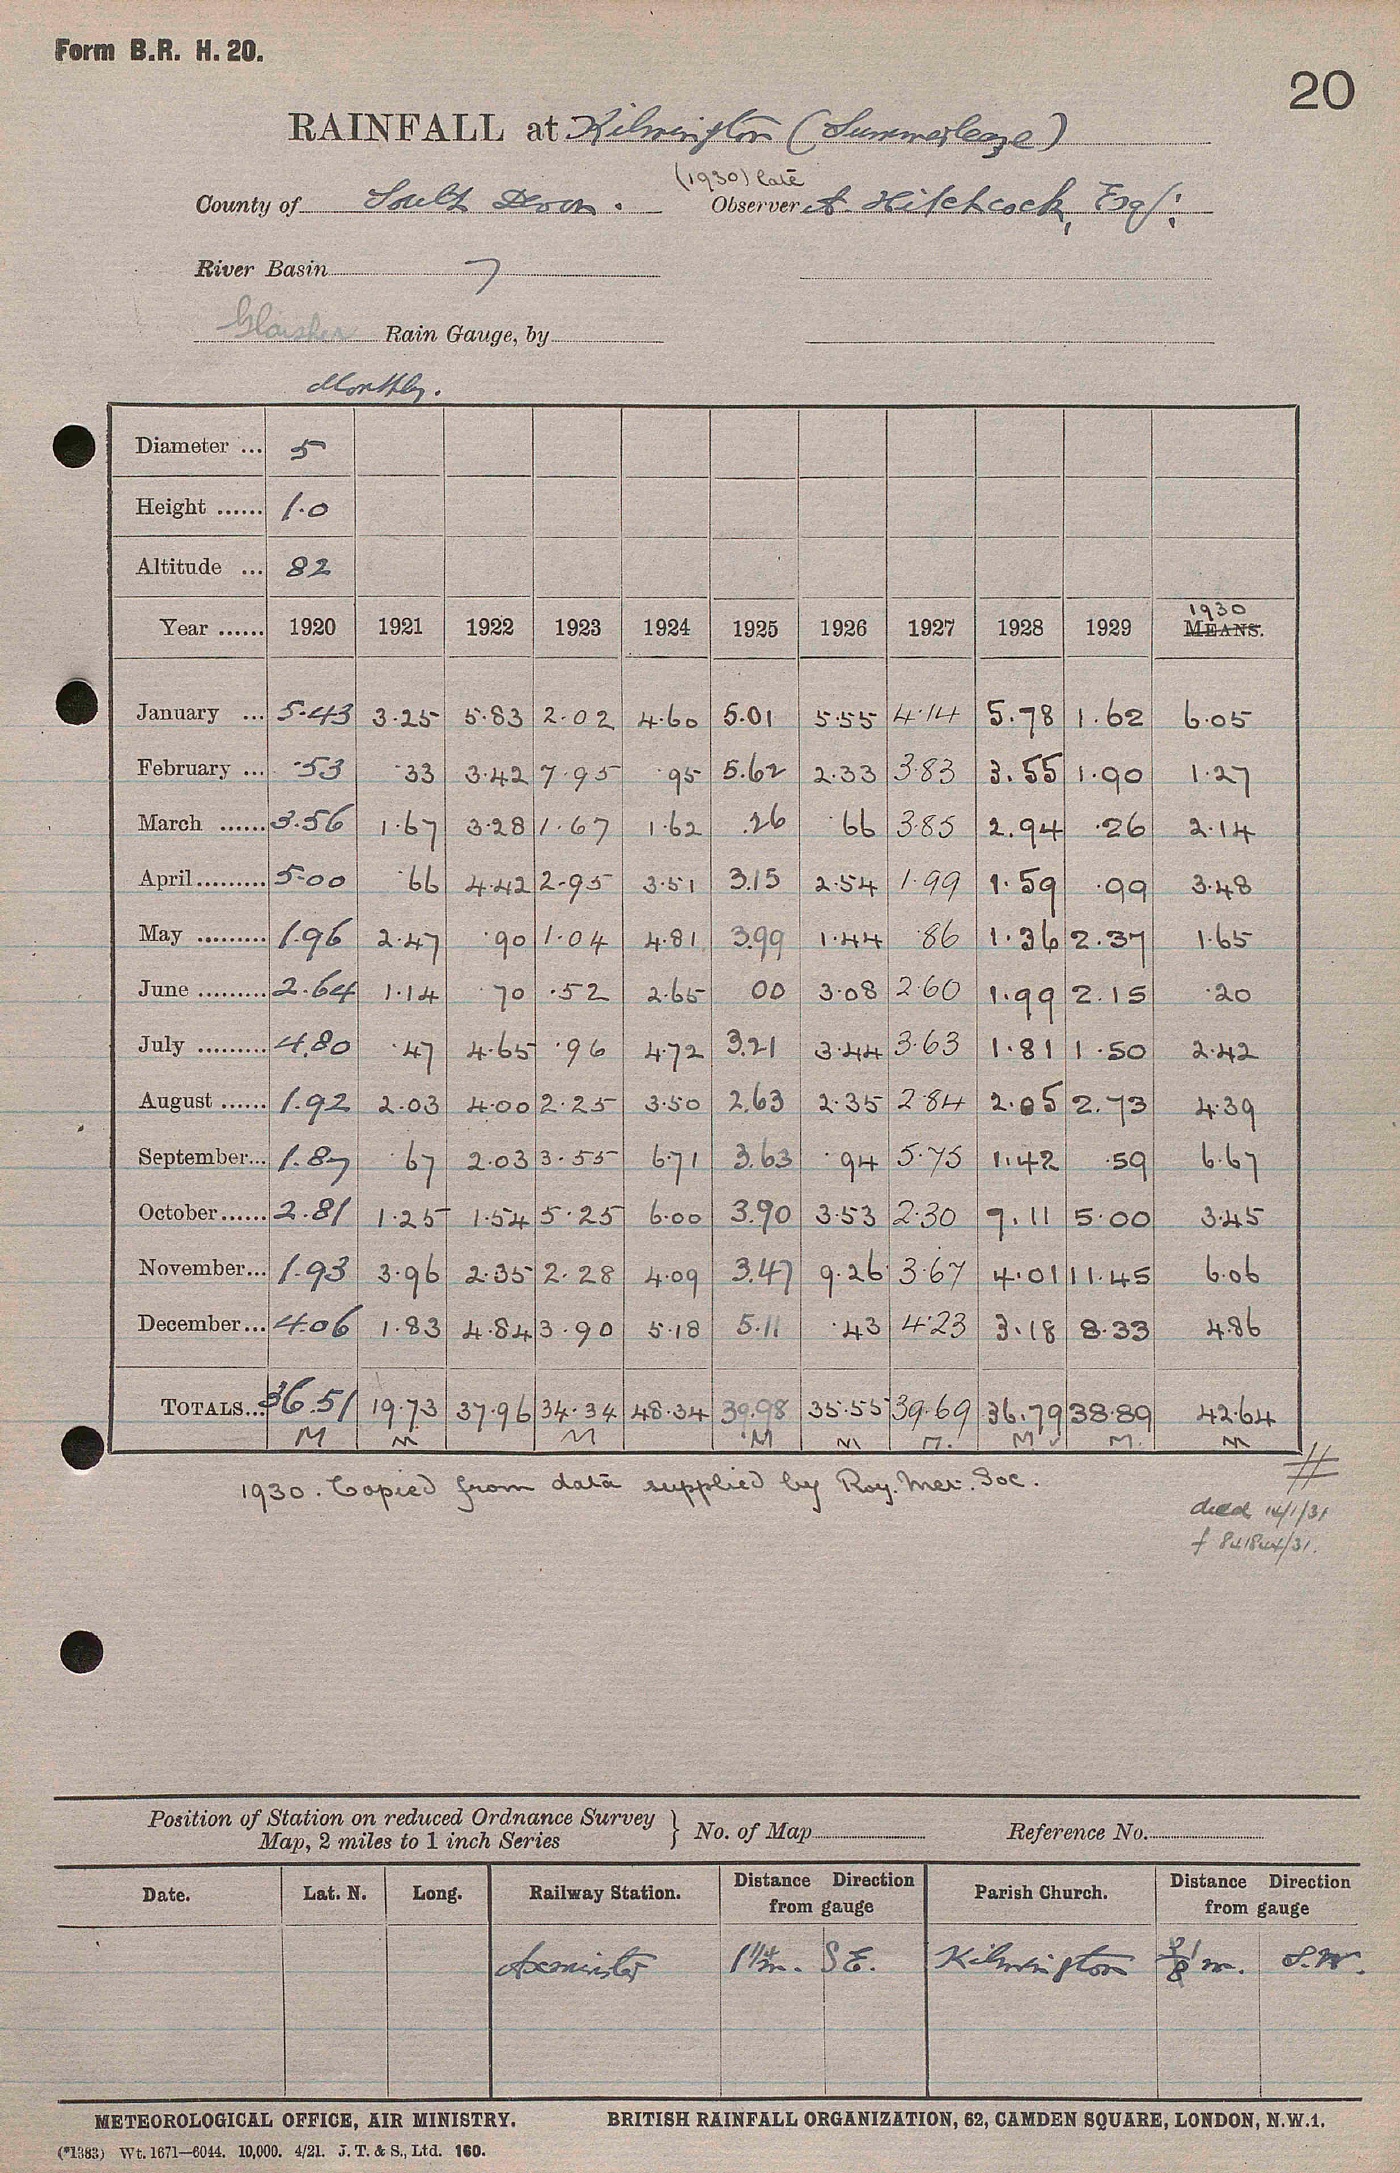 Form B.R. H. 20.
20
RAINFALL at Kilmington (Summerleaze)
(1930) late
County of South Devon. Observer A. Hitchcock, Esq:
River Basin 7
Glaisher Rain Gauge, by
Monthly.
Diameter ... 5
Height ...... 1.0
Altitude ... 82
1930
Year ...... 1920 1921 1922 1923 1924 1925 1926 1927 1928 1929 MEANS.
January ... 5.43 3.25 5.83 2.02 4.60 5.01 5.55 4.14 5.78 1.62 6.05
February ... .53 .33 3.42 7.95 .95 5.62 2.33 3.83 3.55 1.90 1.27
March ...... 3.56 1.67 3.28 1.67 1.62 .26 .66 3.85 2.94 .26 2.14
April......... 5.00 .66 4.42 2.95 3.51 3.15 2.54 1.99 1.59 .99 3.48
May ......... 1.96 2.47 .90 1.04 4.81 3.99 1.44 .86 1.36 2.37 1.65
June ......... 2.64 1.14 .70 .52 2.65 00 3.08 2.60 1.99 2.15 .20
July ......... 4.80 .47 4.65 .96 4.72 3.21 3.44 3.63 1.81 1.50 2.42
August ...... 1.92 2.03 4.00 2.25 3.50 2.63 2.35 2.84 2.05 2.73 4.39
September... 1.87 .67 2.03 3.55 6.71 3.63 .94 5.75 1.42 .59 6.67
October...... 2.81 1.25 1.54 5.25 6.00 3.90 3.53 2.30 7.11 5.00 3.45
November... 1.93 3.96 2.35 2.28 4.09 3.47 9.26 3.67 4.01 11.45 6.06
December... 4.06 1.83 4.84 3.90 5.18 5.11 .43 4.23 3.18 8.33 4.86
TOTALS... 36.51 19.73 37.96 34.34 48.34 39.98 35.55 39.69 36.79 38.89 42.64
M M M M M M. M M. M
1930. Copied from data supplied by Roy. Met. Soc.
died 14/1/31
f 841844/31.
Position of Station on reduced Ordnance Survey
Map, 2 miles to 1 inch Series } No. of Map Reference No.
Date. Lat. N. Long. Railway Station. Distance Direction from gauge Parish Church. Distance Direction from gauge
Axminster 1 1/4 m. S E. Kilmington 3/8 m. S.W.
METEOROLOGICAL OFFICE, AIR MINISTRY. BRITISH RAINFALL ORGANIZATION, 62, CAMDEN SQUARE, LONDON, N.W.1.
(*1383) Wt. 1671—6044. 10,000. 4/21. J. T. & S., Ltd. 160.